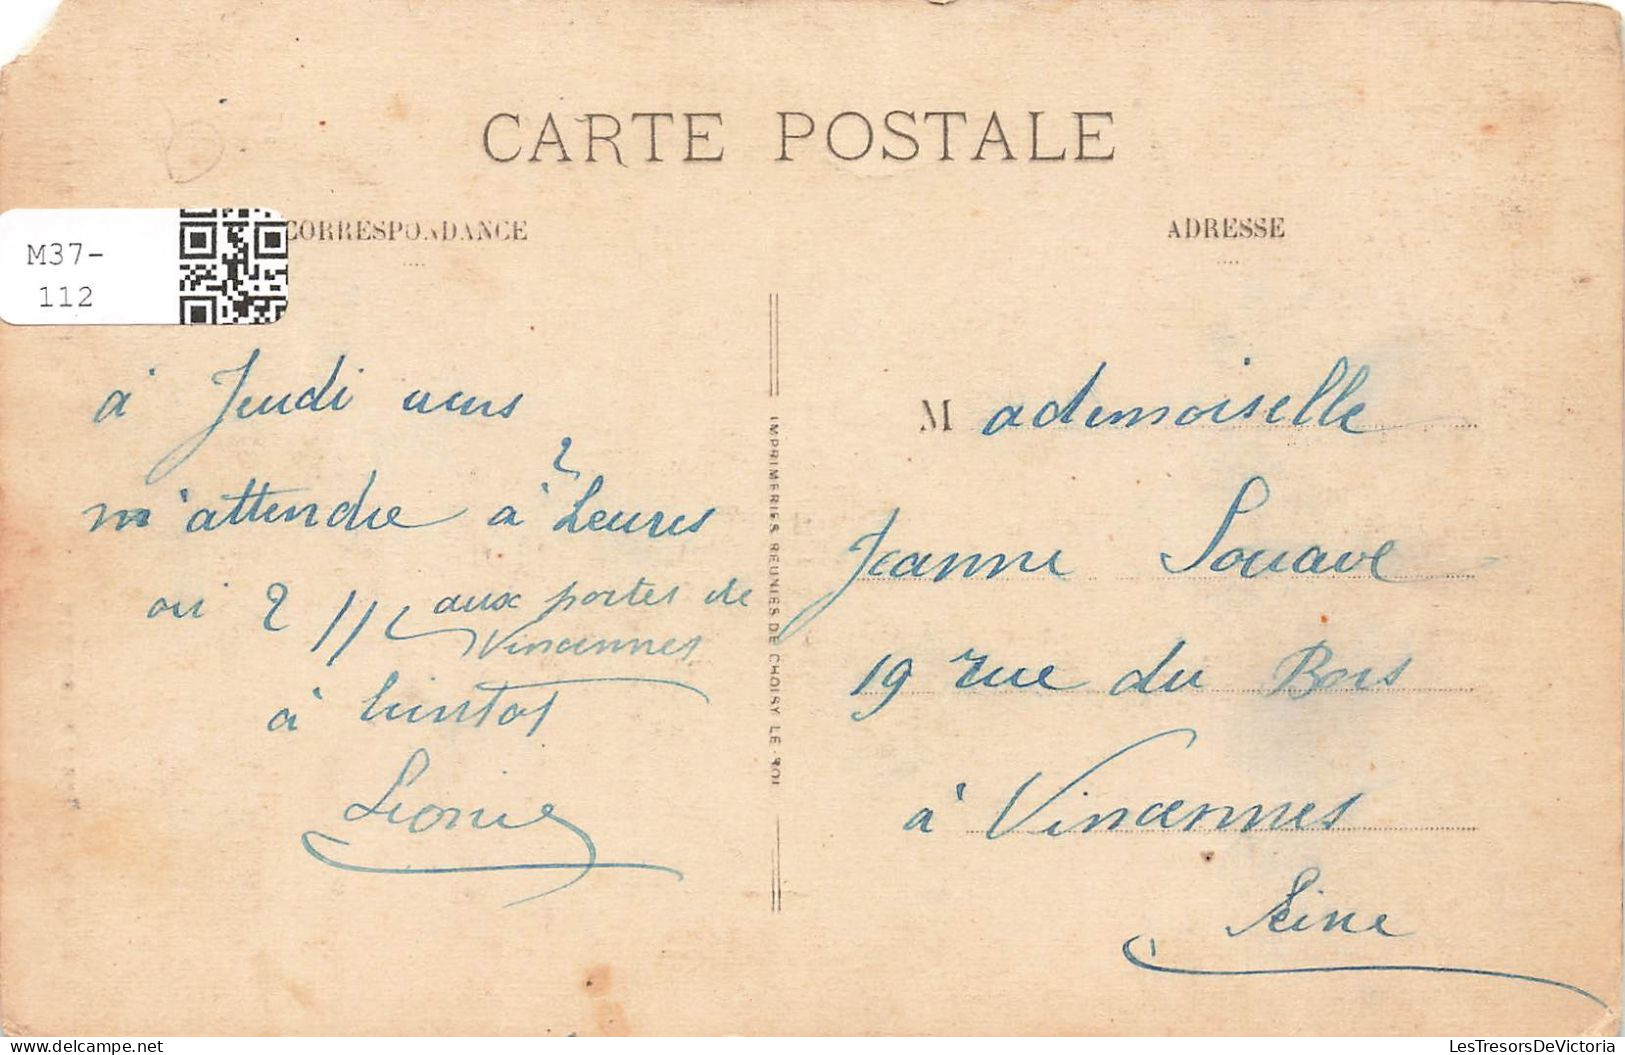 CARTE POSTALE
CORRESPONDANCE
ADRESSE
M37-
112
à Jeudi
m'attendre à 2 heures
ou 2 // aux portes de
Vincennes
à bientot
Léonie
IMPRIMERIES REUNIES DE CHOISY LE ROI
Mademoiselle
Jeanne Souave
19 rue du Bois
à Vincennes
Seine
LesTresorsDeVictoria